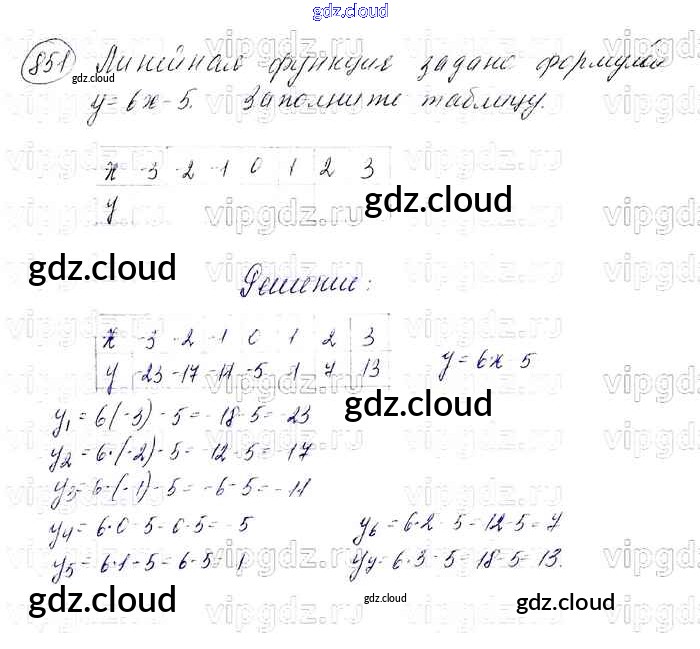 gdz.cloud
851 Линейная функция задано формулой
gdz.cloud
y = 6x - 5. Заполните таблицу.
x -3 -2 -1 0 1 2 3
y
gdz.cloud
gdz.cloud
Решение:
x -3 -2 -1 0 1 2 3
y -23 -17 -11 -5 1 7 13
y = 6x - 5
gdz.cloud
y₁ = 6(-3) - 5 = -18 - 5 = -23
y₂ = 6·(-2) - 5 = -12 - 5 = -17
y₃ = 6·(-1) - 5 = -6 - 5 = -11
y₄ = 6·0 - 5 = 0 - 5 = -5
y₅ = 6·1 - 5 = 6 - 5 = 1
y₆ = 6·2 - 5 = 12 - 5 = 7
y₇ = 6·3 - 5 = 18 - 5 = 13.
gdz.cloud
gdz.cloud
gdz.cloud
vipgdz.ru